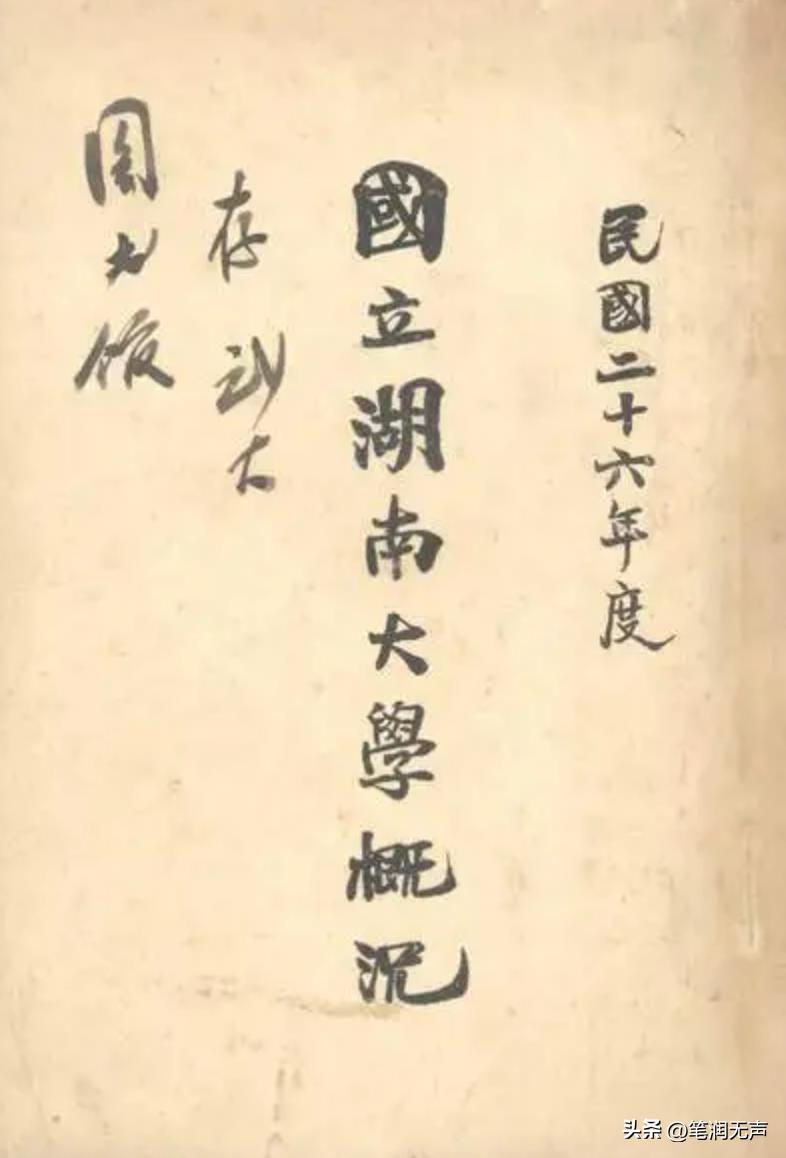 民國二十六年度
國立湖南大學概況
存武大
圖书館
头条 @笔润无声